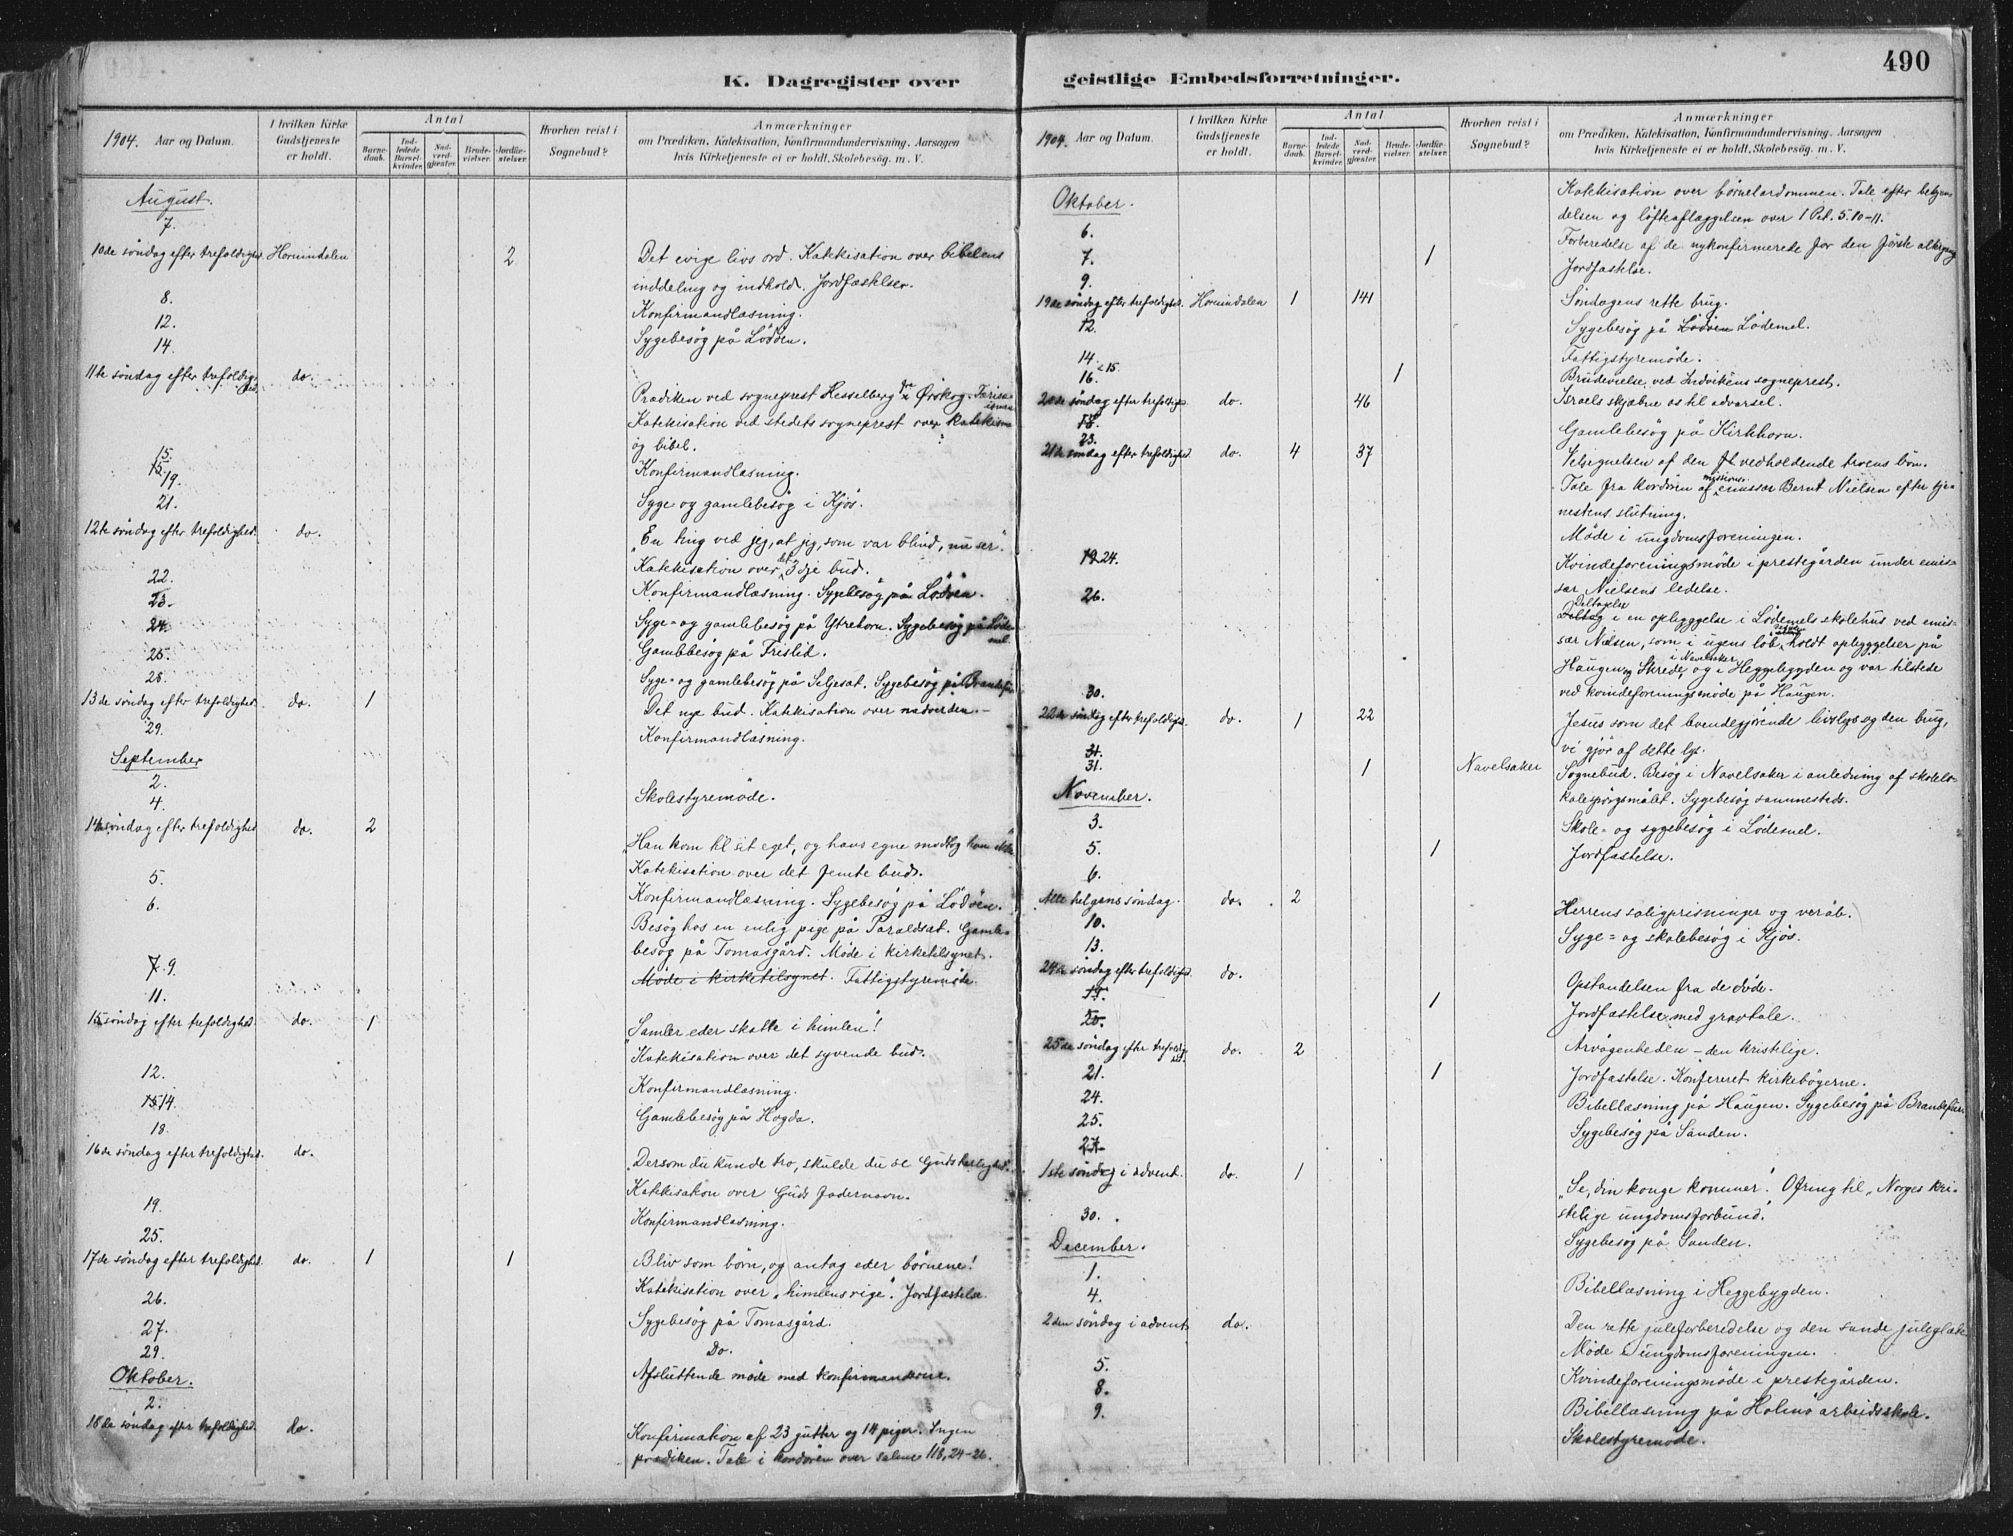 490
K. Dagregister over
1904. Aar og Datum.
I hvilken Kirke Gudstjeneste er holdt.
Antal
Barnedaab.
Indledede Barselkvinder.
Nadverdgjester.
Brudevielser.
Jordfæstelser.
Hvorhen reist i Sognebud?
Anmærkninger
om Prædiken, Katekisation, Konfirmandundervisning. Aarsagen
hvis Kirketjeneste ei er holdt. Skolebesøg. m. V.
August.
7.
10de søndag efter trefoldighed. Hornindalen 2 Det evige livs ord. Katekisation over bibelens
inddeling og indhold. Jordfæstelser.
8. Konfirmandlæsning.
12. Sygebesøg på Lødøen.
14.
11te søndag efter trefoldighed do.
Prædiken ved sogneprest Hesselberg Ørskog.
Katekisation ved stedets sogneprest over katekisme
og bibel.
15. Konfirmandlæsning.
19. Syge og gamlebesøg i Kjøs.
21.
12te søndag efter trefoldighed. do. "En ting ved jeg, at jeg, som var blind, nu ser".
Katekisation over det 3dje bud.
22. Konfirmandlæsning. Sygebesøg på Lødøen.
23.
24. Syge- og gamlebesøg på Ytrehorn. Sygebesøg på Lødemel
25. Gamlebesøg på Frislid.
28. Syge- og gamlebesøg på Seljeset. Sygebesøg på
13de søndag efter trefoldighed. do. 1 Det nye bud. Katekisation over nadverden.
29. Konfirmandlæsning.
September
2. Skolestyremøde.
4.
14de søndag efter trefoldighed do. 2
"Han kom til sit eget, og hans egne modtog ham ikke"
Katekisation over det femte bud.
5. Konfirmandlæsning. Sygebesøg på Lødøen.
6. Besøg hos en enlig pige på Paraldset. Gamlebesøg
på Tomasgård. Møde i kirketilsynet.
7. 9. Møde i kirketilsynet. Fattigstyremøde.
11.
15 søndag efter trefoldighed. do. 1 "Samler eder skatte i himlen"!
Katekisation over det syvende bud.
12. Konfirmandlæsning.
14. Gamlebesøg på Hogda.
18.
16de søndag efter trefoldighed. do. "Dersom du kunde tro, skulde du se Guds herlighed".
Katekisation over Guds fadernavn.
19. Konfirmandlæsning.
25.
17de søndag efter trefoldighed. do. 1 1 Bliv som børn, og antag eder børnene!
Katekisation over "himlens rige". Jordfæstelse.
26. Sygebesøg på Tomasgård.
27. Do.
29. Afsluttende møde med konfirmanderne.
Oktober.
2.
18de søndag efter trefoldighed. do. Konfirmation af 23 gutter og 14 piger. Ingen
prædiken. Tale i kordøren over salme 118, 24-26.
geistlige Embedsforretninger.
1904. Aar og Datum.
I hvilken Kirke Gudstjeneste er holdt.
Antal
Barnedaab.
Indledede Barselkvinder.
Nadverdgjester.
Brudevielser.
Jordfæstelser.
Hvorhen reist i Sognebud?
Anmærkninger
om Prædiken, Katekisation, Konfirmandundervisning. Aarsagen
hvis Kirketjeneste ei er holdt. Skolebesøg. m. V.
Oktober. Katekisation over børnelærdommen. Tale efter bekjendelsen
og løfteaflæggelsen over 1 Pet. 5. 10-11.
6. Forberedelse af de nykonfirmerede for den første altergang
7. 1 Jordfæstelse.
9.
19de søndag efter trefoldighed. Hornindalen 1 141 Søndagens rette brug.
12. Sygebesøg på Lødøen Lødemel.
14. Fattigstyremøde.
15. 16. 1 Brudevielse ved Indvikens sogneprest.
20de søndag efter trefoldighed do. 46 Israels skjæbne os til advarsel.
18. Gamlebesøg på Kirkhorn.
23.
21de søndag efter trefoldighed. do. 4 37 Velsignelsen af den vedholdende troens bøn.
Tale fra kordøren af missions emissær Bernt Nielsen efter tjenestens
slutning.
Møde i ungdomsforeningen.
19 24. Kvindeforeningsmøde i prestegården under emissær
Nielsens ledelse.
26. Deltagelse i en opbyggelse i Lødemels skolehus ved emissær
Nielsen, som i ugens løb holdt opbyggelser på
Haugen, Skrede, i Navelsaker og i Heggebygden og var tilstede
30. ved kvindeforeningsmøde på Haugen.
22de søndag efter trefoldighed. do. 1 22 Jesus som det levendegjørende livslys og den brug,
31. vi gjør af dette lys.
31. 1 Navelsaker Sognebud. Besøg i Navelsaker i anledning af skolelokalespørgsmålet.
Sygebesøg sammesteds.
November.
3. Skole- og sygebesøg i Lødemel.
5. 1 Jordfæstelse.
6.
Alle helgens søndag. do. 2 Herrens saligprisninger og veråb.
10. Syge- og skolebesøg i Kjøs.
13.
24de søndag efter trefoldighed do. Opstandelsen fra de døde.
19. 1 Jordfæstelse med gravtale.
20.
25de søndag efter trefoldighed. do. 2 Årvågenheden - den kristelige.
21. 1 Jordfæstelse. Konfereret kirkebøgerne.
24. Bibellæsning på Haugen. Sygebesøg på
25. Sygebesøg på Sanden.
27.
1ste søndag i advent. do. 1 "Se, din konge kommer". Ofring til "Norges kristelige
ungdomsforbund".
30. Sygebesøg på Sanden.
December.
1. Bibellæsning i Heggebygden.
4.
2den søndag i advent do. Den rette juleforberedelse og den sande juleglæde
Møde i ungdomsforeningen.
5. Kvindeforeningsmøde i prestegården.
8. Bibellæsning på Holmø arbeidsskole.
9. Skolestyremøde.